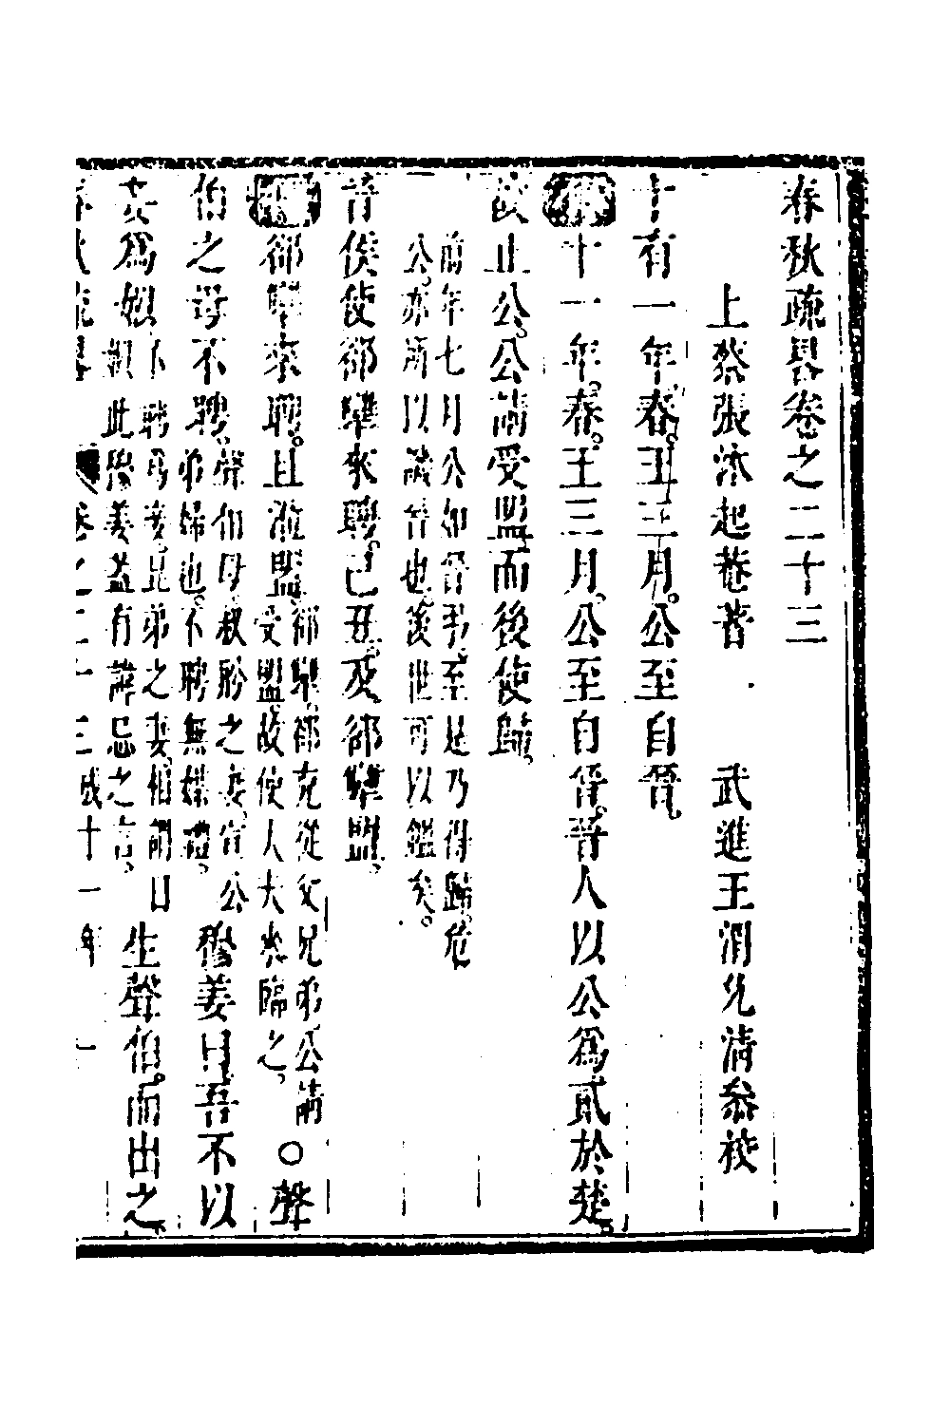 春秋疏畧卷之二十三
上蔡張沐起菴著 武進王渭允清叅校
十有一年春王正月公至自晉
傳十一年春王三月公至自晉晉人以公爲貳於楚
故止公公請受盟而後使歸
前年七月公如晉弔至是乃得歸危
公亦所以譏晉也後世可以鑑矣
晉侯使郤犨來聘己丑及郤犨盟
郤犨來聘且涖盟
郤犨郤克從父兄弟公請
受盟故使大夫來臨之
○聲
伯之母不聘
聲伯母叔肸之妻宣公
弟婦也不聘無媒禮
穆姜曰吾不以
妾爲姒
不聘爲妾昆弟之妻相謂曰
姒此穆姜蓋有諱忌之言
生聲伯而出之
春秋疏畧 卷之二十三 成十一年 一